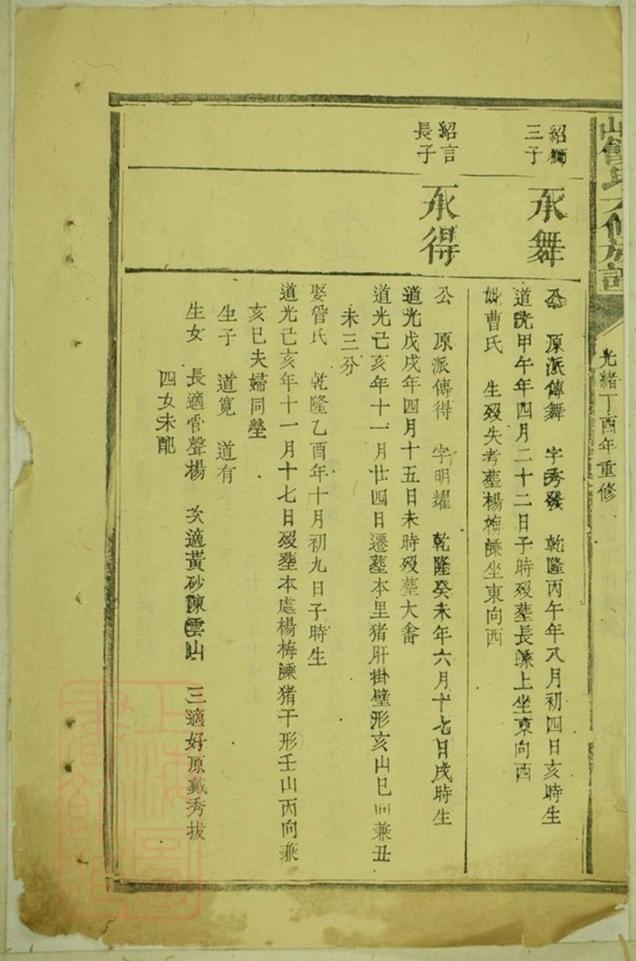 氏
修族譜
光緒丁酉年重修
紹獅
三子
承舞
公 原派傳舞 字秀發 乾隆丙午年八月初四日亥時生
道光甲午年四月二十二日子時歿塟長𡼏上坐東向西
妣曹氏 生歿失考塟楊梅𡼏坐東向西
紹言
長子
承得
公 原派傳得 字明耀 乾隆癸未年六月十七日戌時生
道光戊戌年四月十五日未時歿塟大畬
道光己亥年十一月廿四日遷塟本里猪肝掛壁形亥山巳向兼丑
未三分
娶管氏 乾隆乙酉年十月初九日子時生
道光己亥年十一月十七日歿塟本處楊梅𡼏猪干形壬山丙向兼
亥巳夫婦同塋
生子 道寬 道有
生女 長適管聲楊 次適黃砂陳雲山 三適好原戴秀拔
四女未配